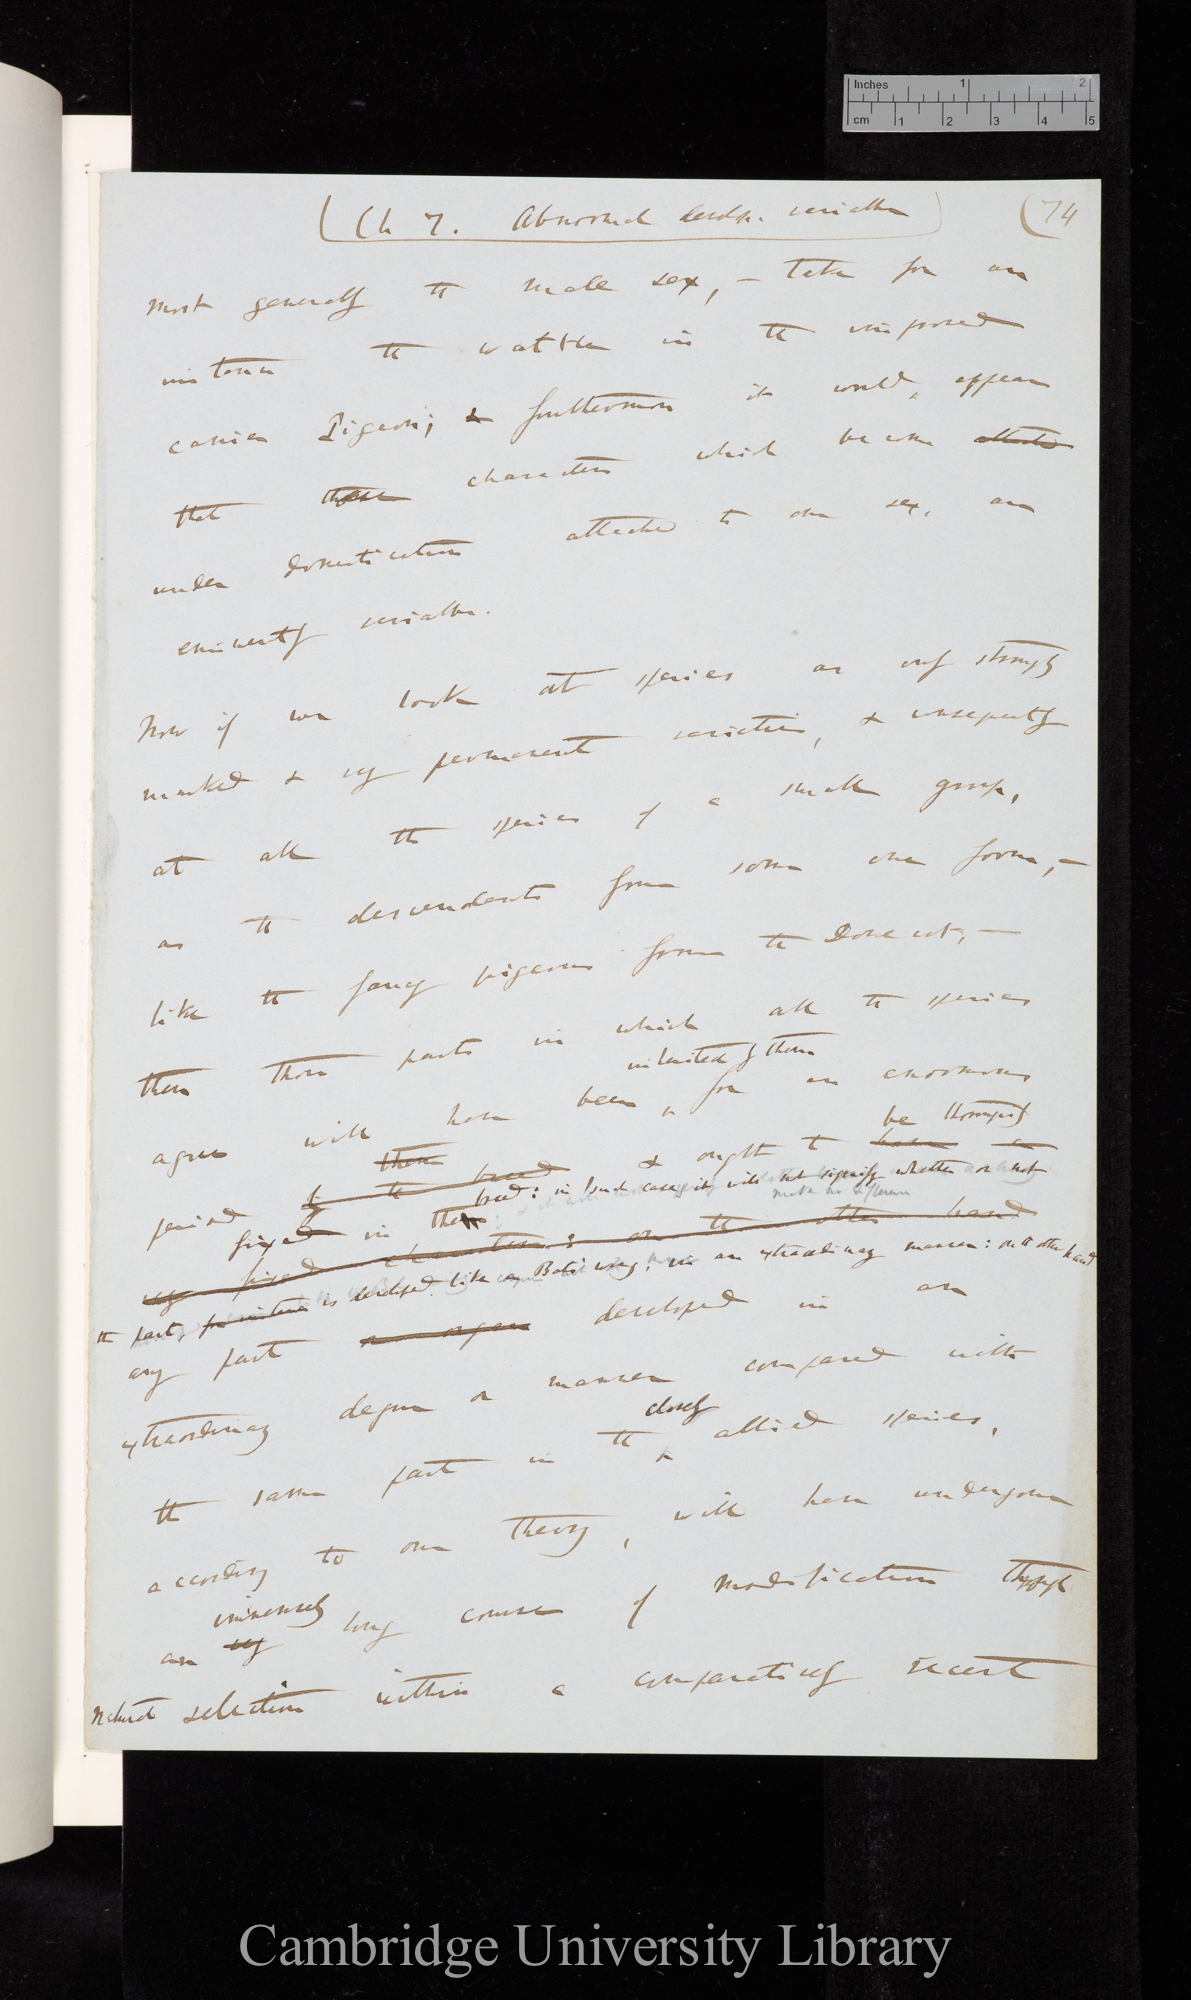 Inches 1 2
cm 1 2 3 4 5
(Ch 7. Abnormal develop. variable) (74
most generally to male sex, — take for an
instance the wattle in the improved
carrier Pigeon; & furthermore it would appear
that these characters which become
under domestication attached to one sex, are
eminently variable.
Now if we look at species as only strongly
marked & very permanent varieties, & consequently
at all the species of a small group,
as the descendants from some one form, —
like the fancy pigeons from the Dove cot, —
then those parts in which all the species
inherited by them
agree will have been for an enormous
be thoroughly
period by the breed & ought to have
them
fixed in the breed: in such case, it will not signify whether or not
make no difference
very fixed characters: on the other hand
the part, for instance is developed like a Bats wing, in an extraordinary manner: on the other hand
any part or organ developed in an
extraordinary degree or manner compared with
closely
the same part in the allied species,
according to our theory, will have undergone
immensely
an very long course of modification through
natural selection within a comparatively recent
Cambridge University Library